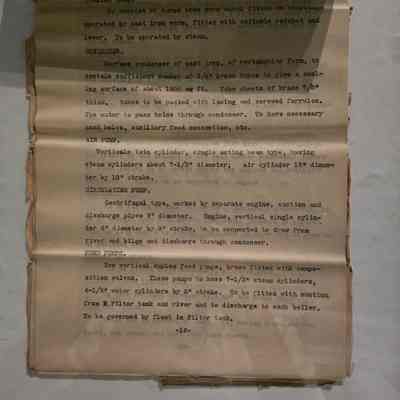 operated by cast iron worm, fitted with suitable ratchet and
lever. To be operated by steam.
CONDENSER.
Surface condenser of cast iron, of rectangular form, to
contain sufficient number of 3/4" brass tubes to give a cool-
ing surface of about 1000 sq ft. Tube sheets of brass 7/8"
thick. tubes to be packed with lacing and screwed ferrules.
The water to pass twice through condenser. To have necessary
hand holes, auxiliary feed connection, etc.
AIR PUMP.
Verticale twin cylinder, single acting beam type, having
steam cylinders about 7-1/2" diameter; air cylinder 16" diame-
ter by 10" stroke.
CIRCULATING PUMP.
Centrifugal type, worked by separate engine, suction and
discharge pipes 8" diameter. Engine, vertical single cylin-
der 6" diameter by stroke, to be connected to draw from
river and bilge and discharge through condenser.
FEED PUMPS.
Two vertical duplex feed pumps, brass fitted with compo-
sition valves. These pumps to have 7-1/2" steam cylinders,
4-1/2" water cylinders by stroke. To be fitted with suction
from Filter tank and river and to discharge to each boiler.
To be governed by float in Filter tank.